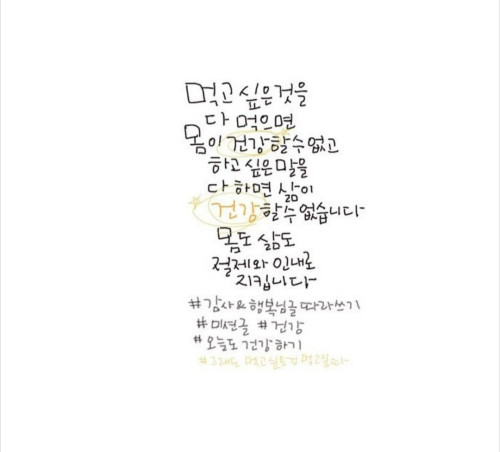 먹고 싶은것을
다 먹으면
몸이 건강할수없고
하고 싶은 말을
다 하면 삶이
건강할수없습니다
몸도 삶도
절제와 인내로
지킵니다
#감사&행복님글 따라쓰기
#미션글 #건강
#오늘도 건강하기
#그래도 먹고싶은건 먹고싶다